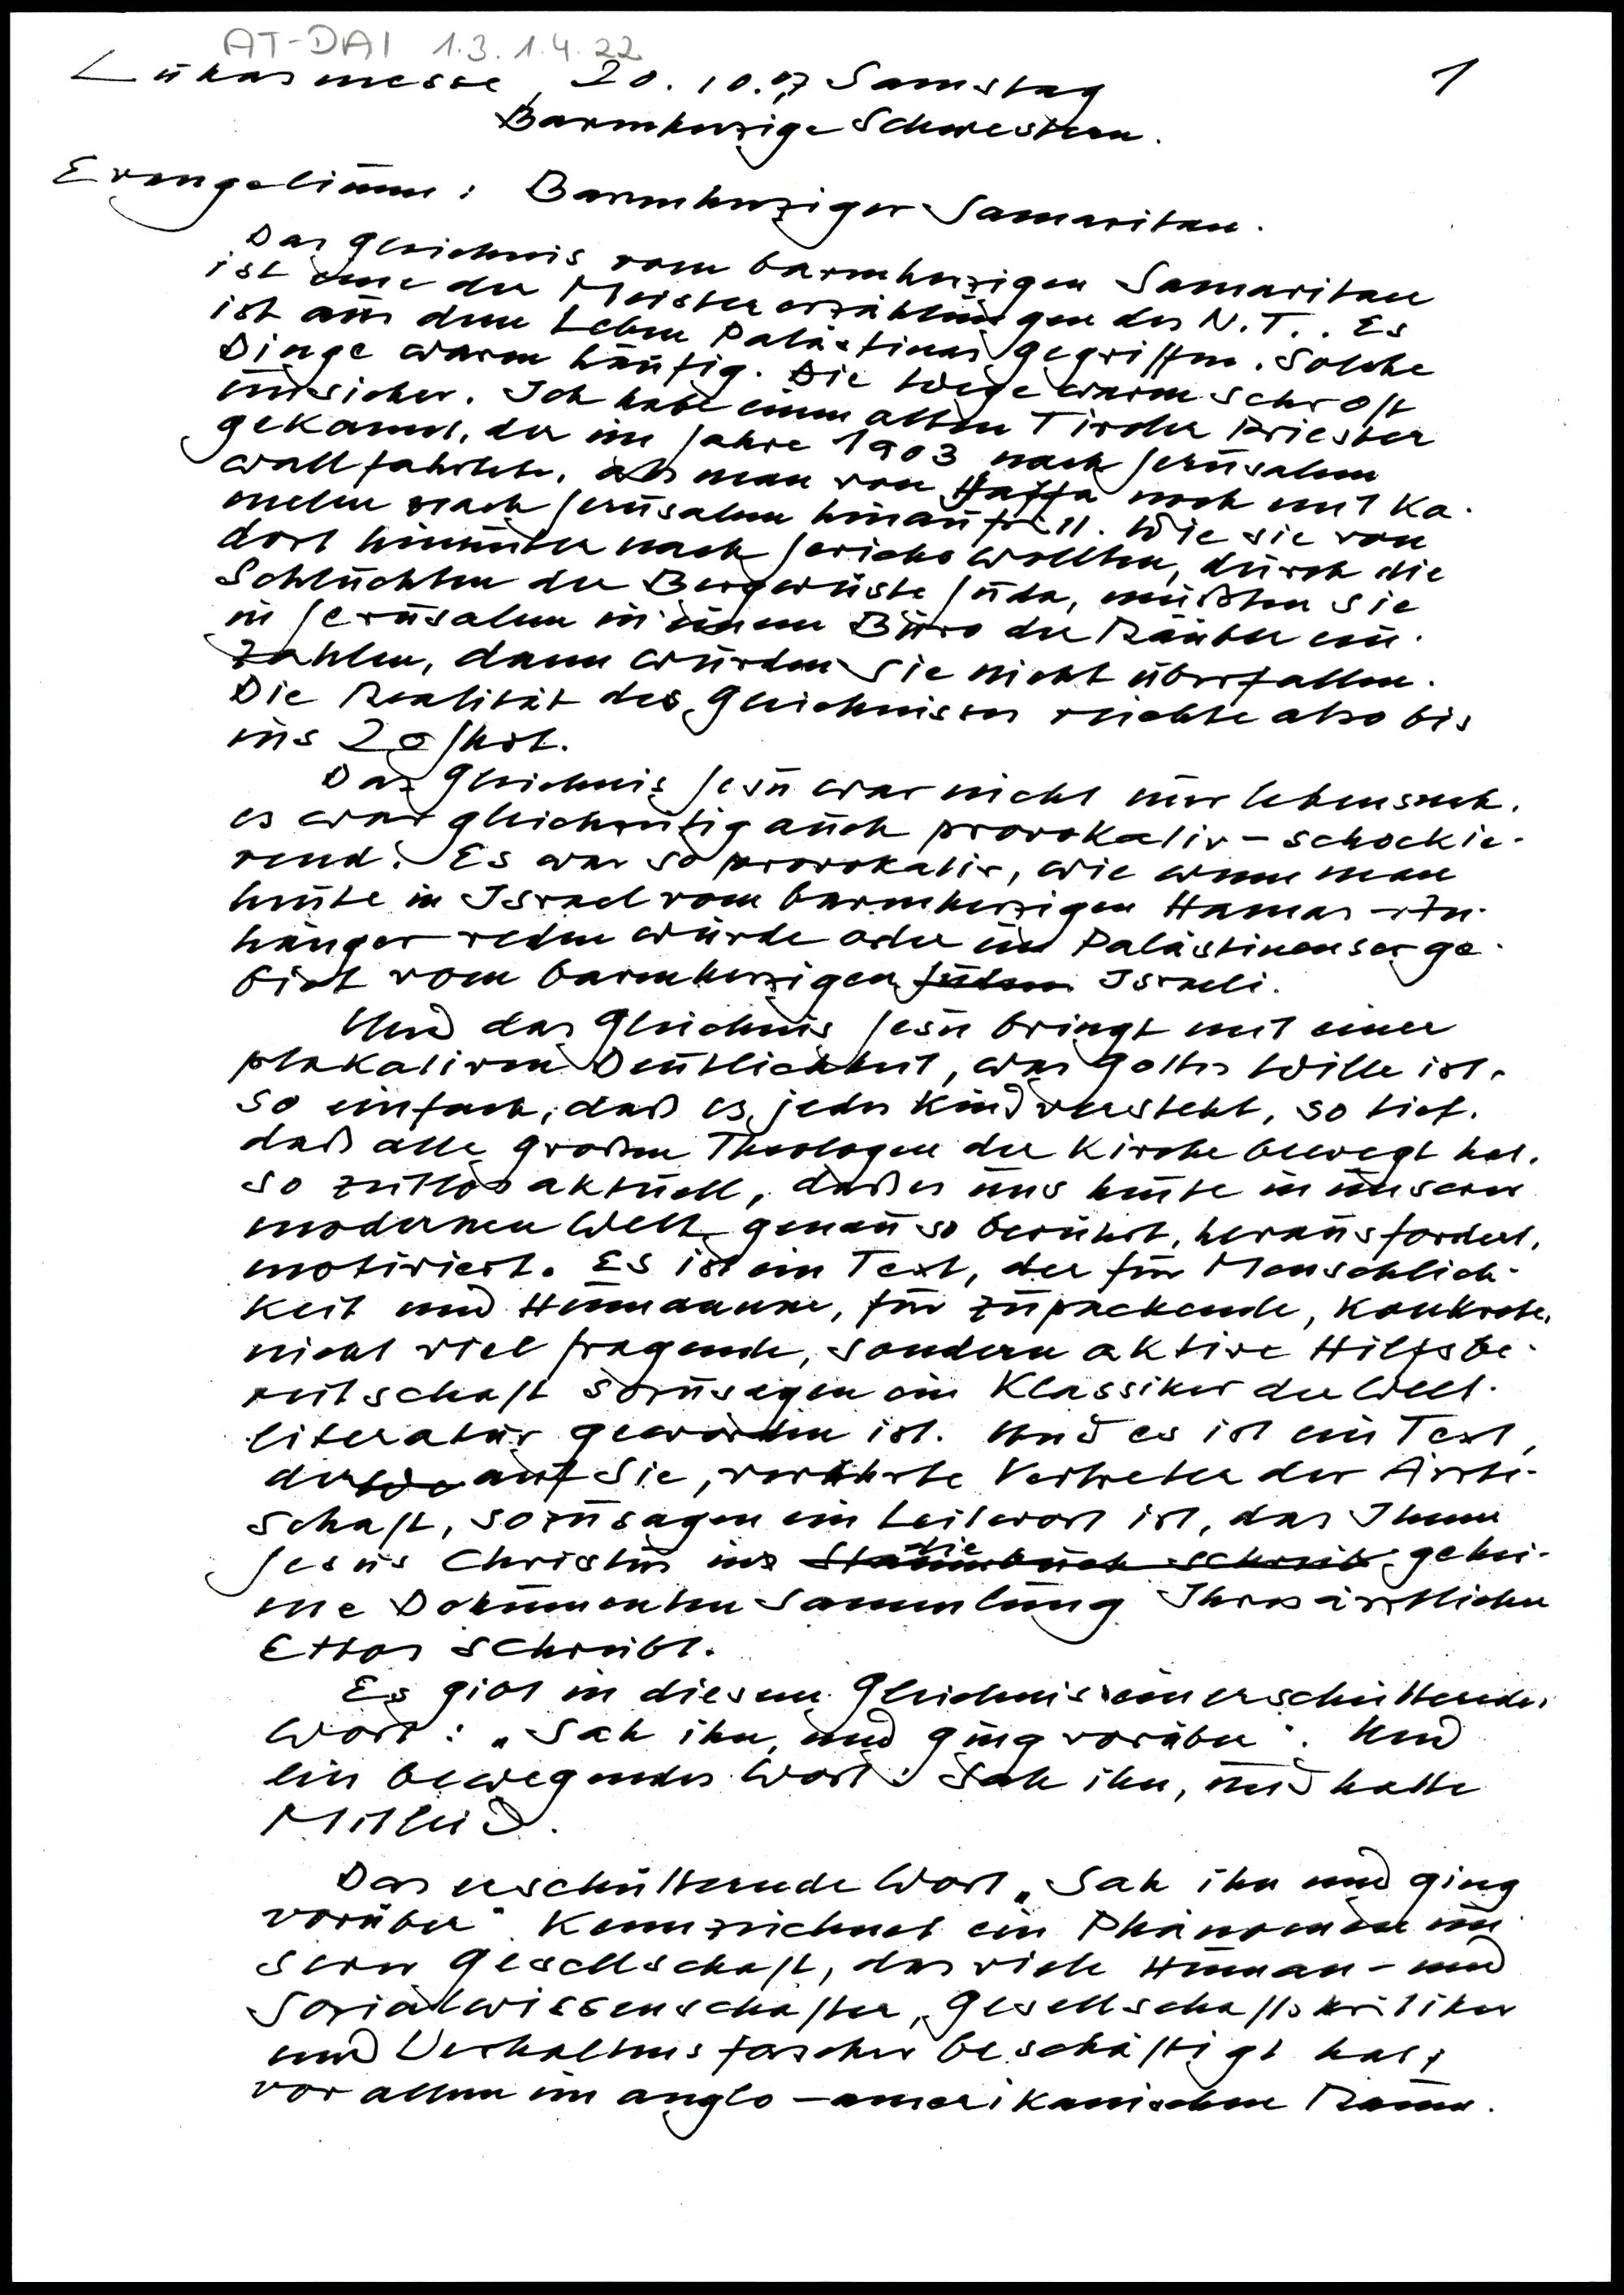 AT-DAI 1.3.1.4.22
Lukasmesse, 20.10.07 Samstag 1
Barmherzige Schwestern.
Evangelium: Barmherziger Samaritan.
Das Gleichnis vom barmherzigen Samaritan
ist eine der Meistererzählungen des N.T.. Es
ist aus dem Leben Palästinas gegriffen. Solche
Dinge waren häufig. Die Wege waren schroff
unsicher. Ich habe einen alten Tiroler Priester
gekannt, der im Jahre 1903 nach Jerusalem
wallfahrtete, als man von Haifa noch mit Ka-
melen nach Jerusalem hinaufritt. Wie sie von
dort hinunter nach Jericho wollten, durch die
Schluchten der Bergwüste Juda, mußten sie
in Jerusalem in einem Büro der Räuber ein-
zahlen, dann wurden sie nicht überfallen.
Die Realität des Gleichnisses reichte also bis
ins 20 Jhrt.
Das Gleichnis Jesu war nicht nur lebensnah,
es war gleichzeitig auch provokativ-schockie-
rend. Es war so provokativ, wie wenn man
heute in Israel vom barmherzigen Hamas-An-
hänger reden würde oder im Palästinenserge-
biet vom barmherzigen Juden Israeli.
Und das Gleichnis Jesu bringt mit einer
plakativen Deutlichkeit, was Gottes Wille ist.
So einfach, daß es jedes Kind versteht, so tief,
daß alle großen Theologen der Kirche bewegt hat,
so zeitlos aktuell, daß es uns heute in unserer
modernen Welt genau so berührt, herausfordert,
motiviert. Es ist ein Text, der für Menschlich-
keit und Humanum, für zupackende, konkrete,
nicht viel fragende, sondern aktive Hilfsbe-
reitschaft sozusagen ein Klassiker der Welt-
literatur geworden ist. Und es ist ein Text,
der auf Sie, verehrte Vertreter der Ärzte-
schaft, sozusagen ein Leitwort ist, das Ihnen
Jesus Christus in die Stammbuch schreibt gehei-
me Dokumentensammlung Ihres ärztlichen
Ethos schreibt.
Es gibt in diesem Gleichnis ein erschütterndes
Wort: „Sah ihn, und ging vorüber“. Und
ein bewegendes Wort: Sah ihn, und hatte
Mitleid.
Das erschütternde Wort „Sah ihn und ging
vorüber“ kennzeichnet ein Phänomen un-
serer Gesellschaft, das viele Human- und
Sozialwissenschafter, Gesellschaftskritiker
und Verhaltensforscher beschäftigt hat,
vor allem im anglo-amerikanischen Raum.